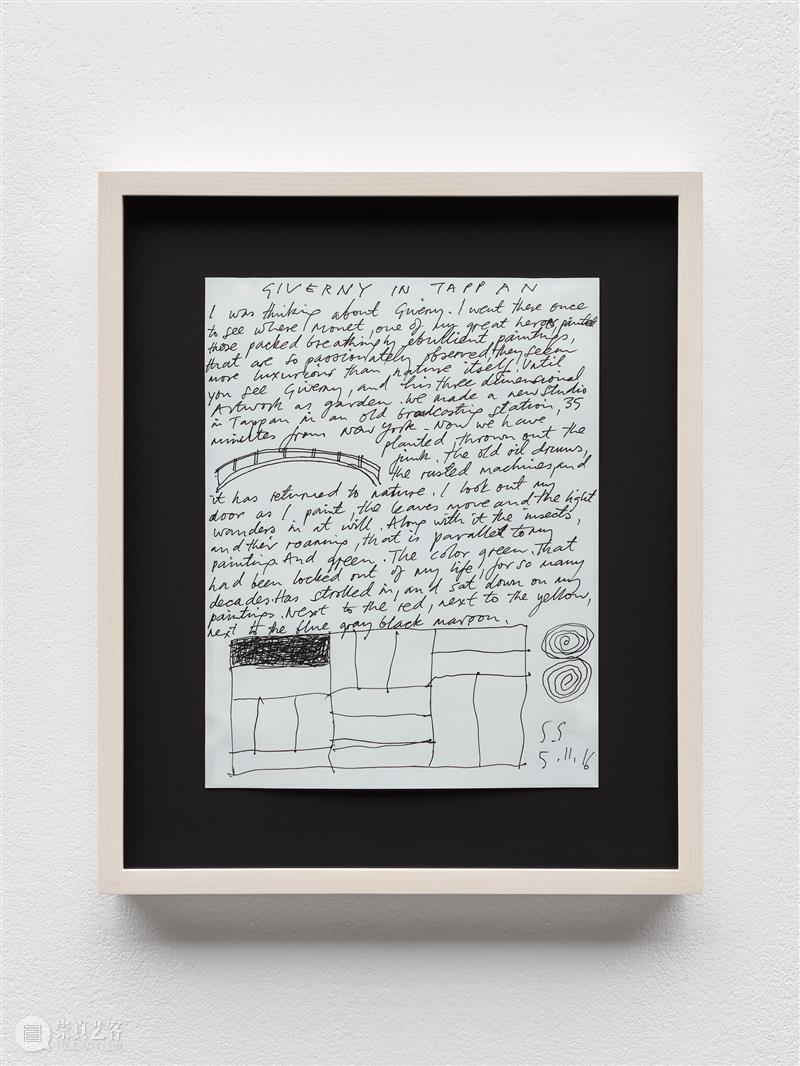 GIVERNY IN TAPPAN
I was thinking about Giverny. I went there once
to see where Monet, one of my great heroes, painted
those packed breathingly ebullient, paintings,
that are so passionately observed, they seem
more luxurious than nature itself. Until
you see Giverny, and his three dimensional
Artwork as garden. We made a new studio
in Tappan in an old broadcasting station, 35
minutes from New York. Now we have
planted thrown out the
junk. The old oil drums,
the rusted machines, and
it has returned to nature. I look out my
door as I paint, the leaves move and the light
wanders in at will. Along with it the insects,
and their roaming, that is parallel to my
painting. And green. The color green. That
had been locked out of my life, for so many
decades. Has strolled in, and sat down on my
paintings. Next to the red, next to the yellow,
next to the blue gray black maroon.
SS
5.11.16
崇真艺客